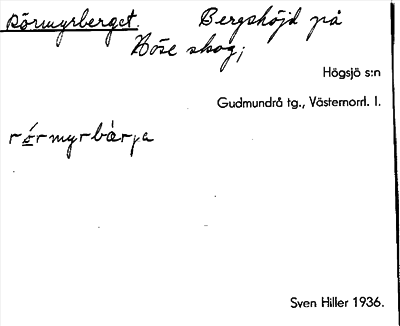 Rörmyrberget. Bergshöjd på
Höse skog;
Högsjö s:n
Gudmundrå tg., Västernorrl. l.
rörmyrbærja
Sven Hiller 1936.